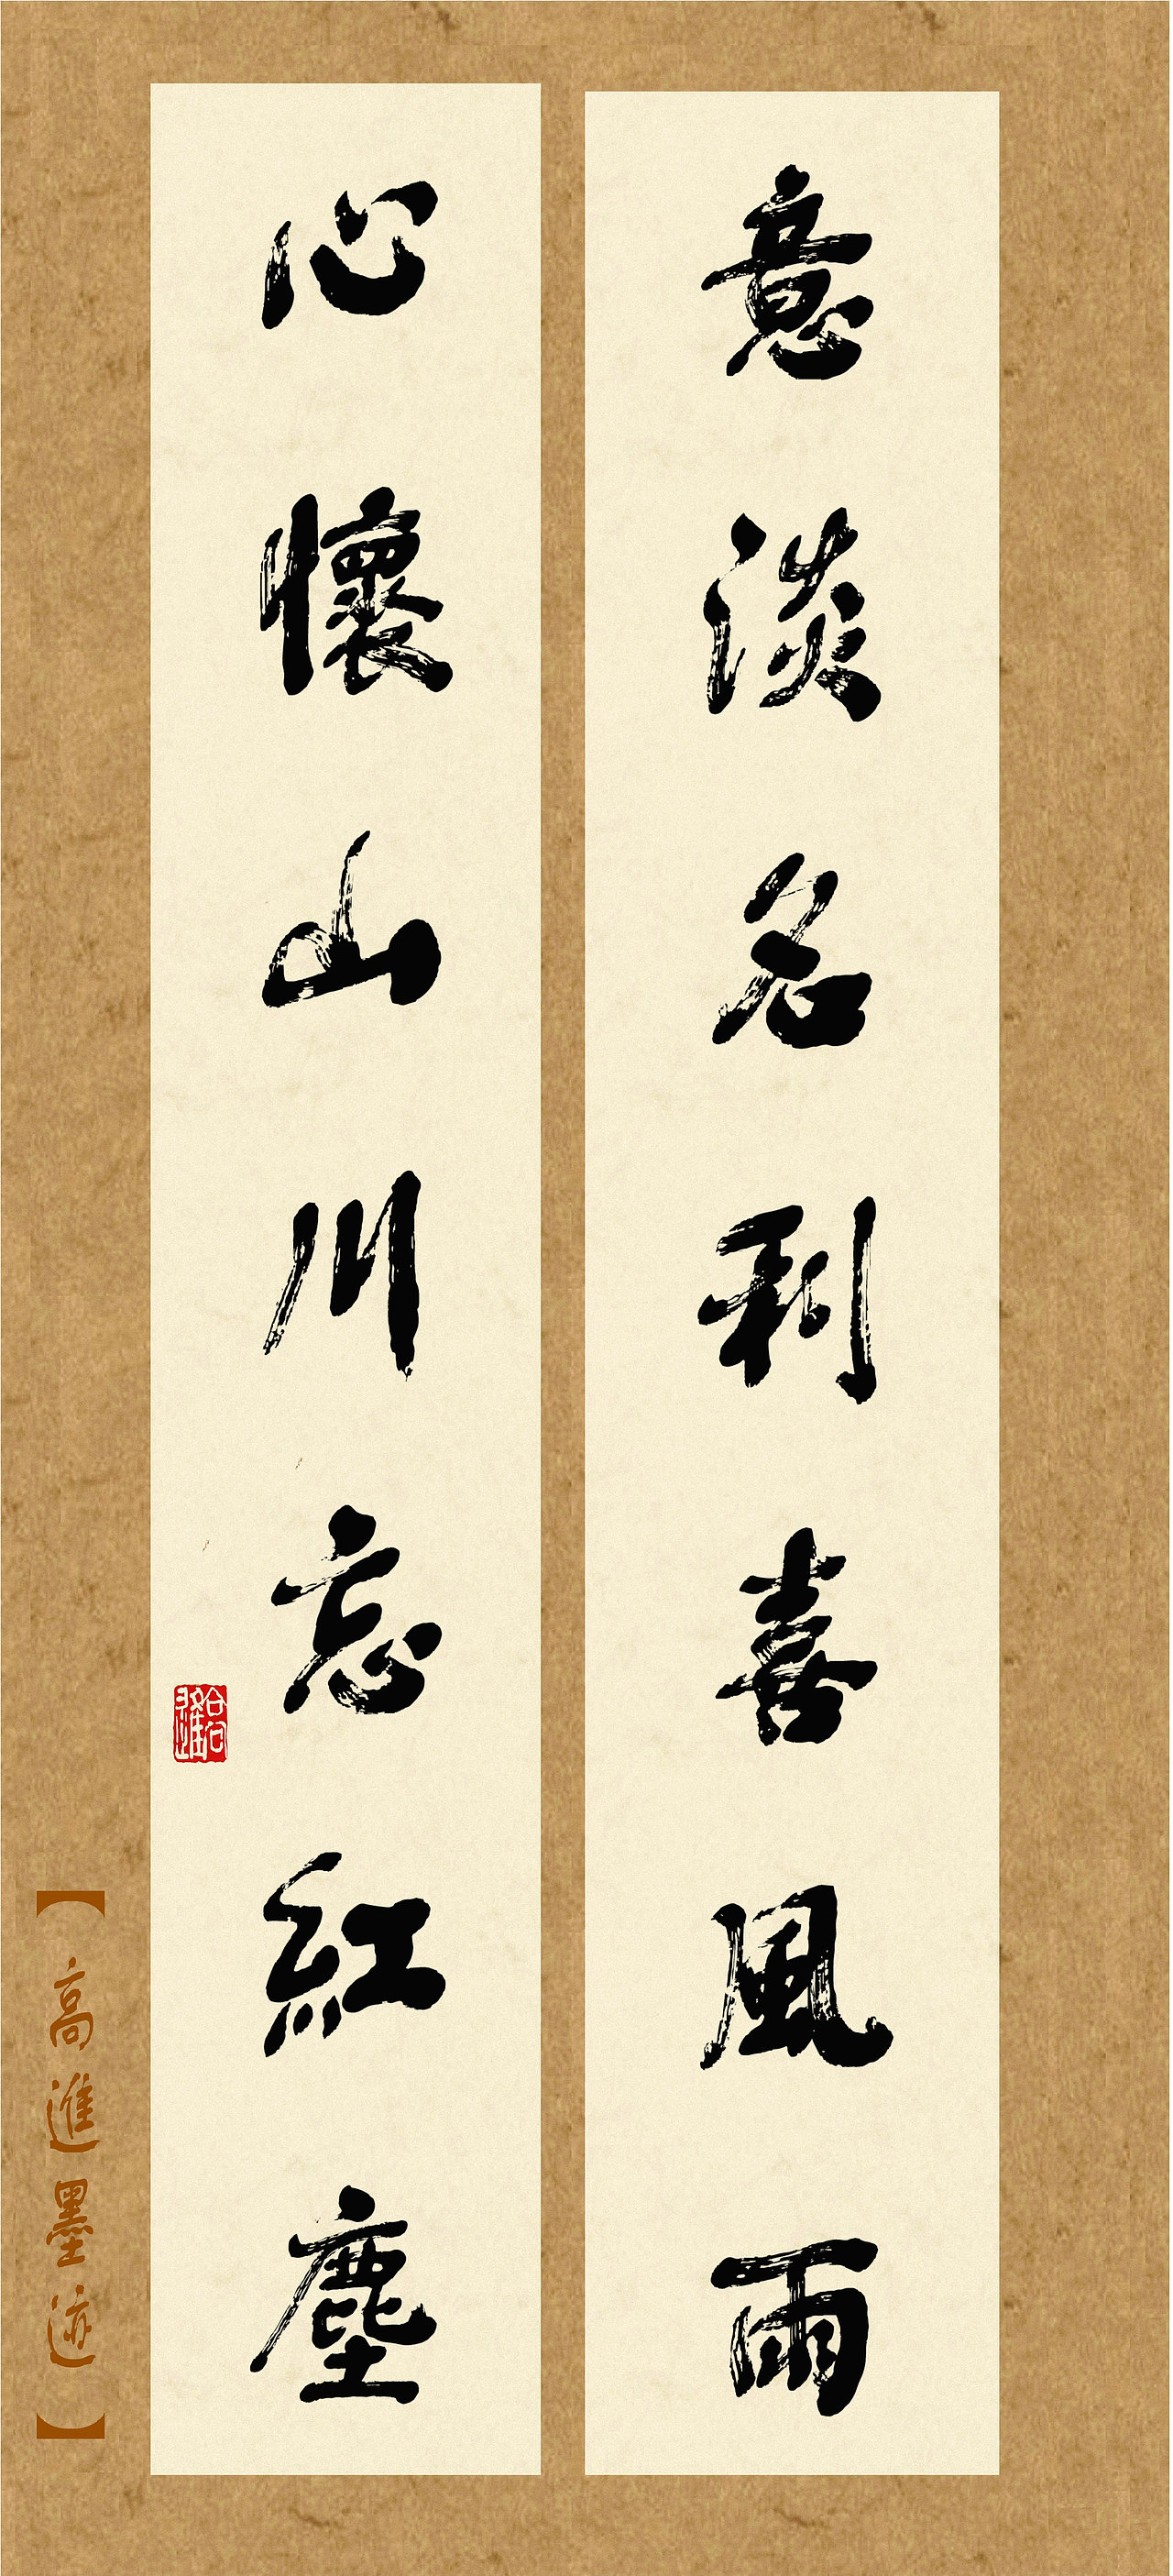 意淡名利喜風雨
心懷山川忘紅塵
高進
【高進墨迹】